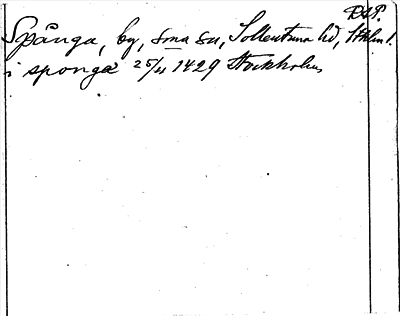 DSP.
Spånga, by, sma sn, Sollentuna hd, Sthlm l.
i sponga 25/11 1429 Stockholm